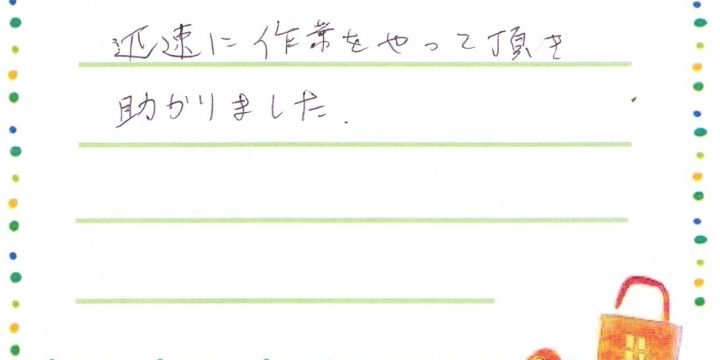 迅速に作業をやって頂き
助かりました.